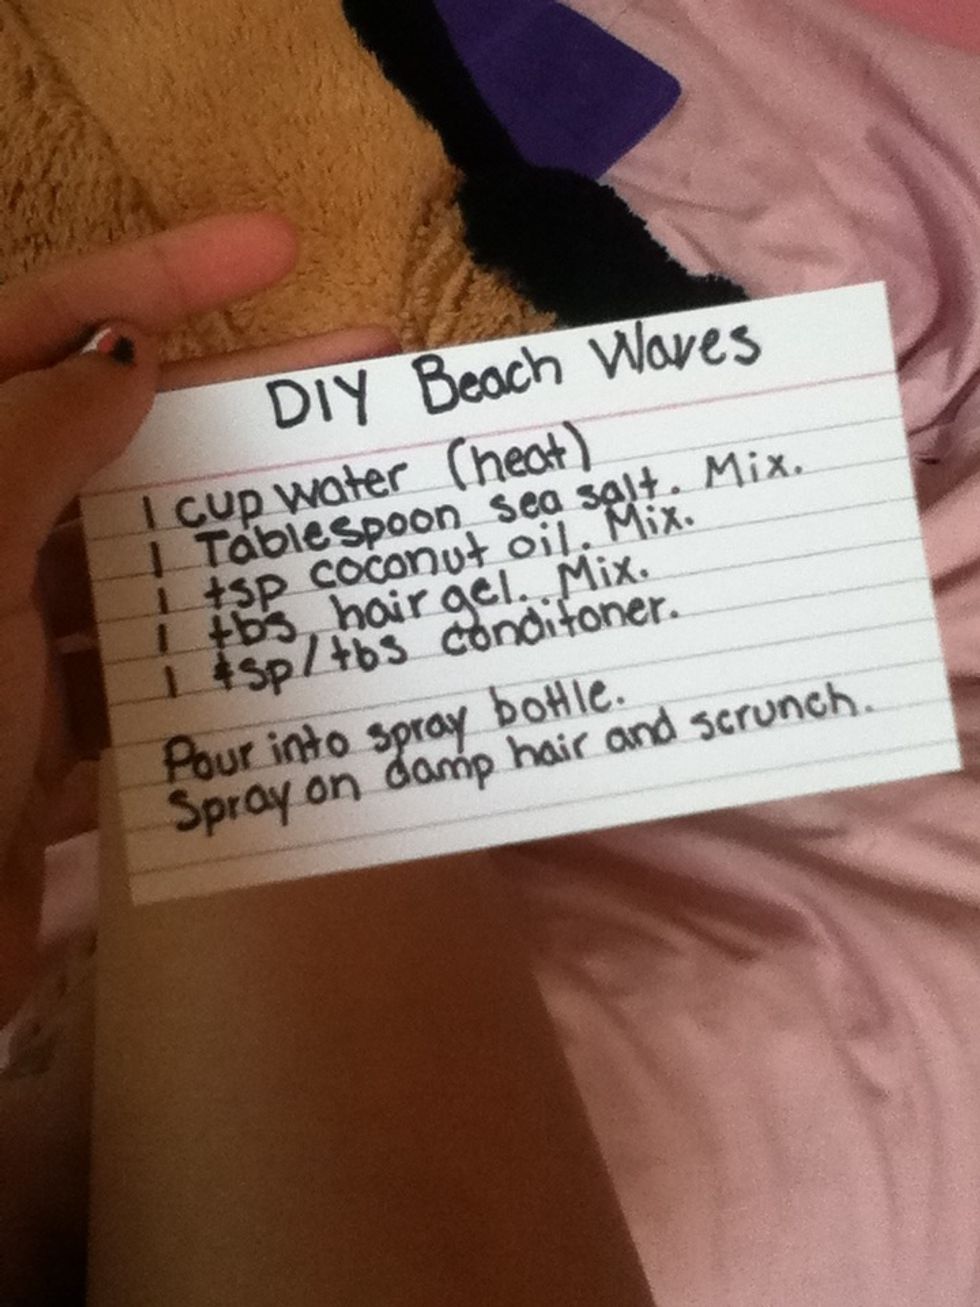 DIY Beach Waves
1 cup water (heat)
1 Tablespoon sea salt. Mix.
1 tsp coconut oil. Mix.
1 tbs hair gel. Mix.
1 tsp/tbs conditoner.
Pour into spray bottle.
Spray on damp hair and scrunch.